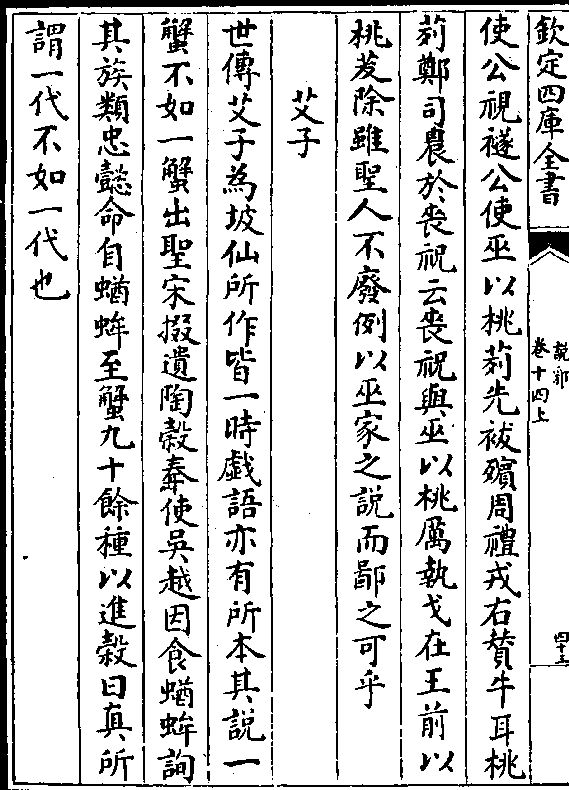 欽定四庫全書
說郛
卷十四上
四十三
使公視襚公使巫以桃茢先祓殯周禮戎右賛牛耳桃
茢鄭司農於喪祝云喪祝與巫以桃厲執戈在王前以
桃茇除雖聖人不廢例以巫家之說而鄙之可乎
艾子
世傳艾子為坡仙所作皆一時戲語亦有所本其說一
蟹不如一蟹出聖宋掇遺陶穀奉使吳越因食蝤蛑詢
其族類忠懿命自蝤蛑至蟹凡十餘種以進穀曰真所
謂一代不如一代也